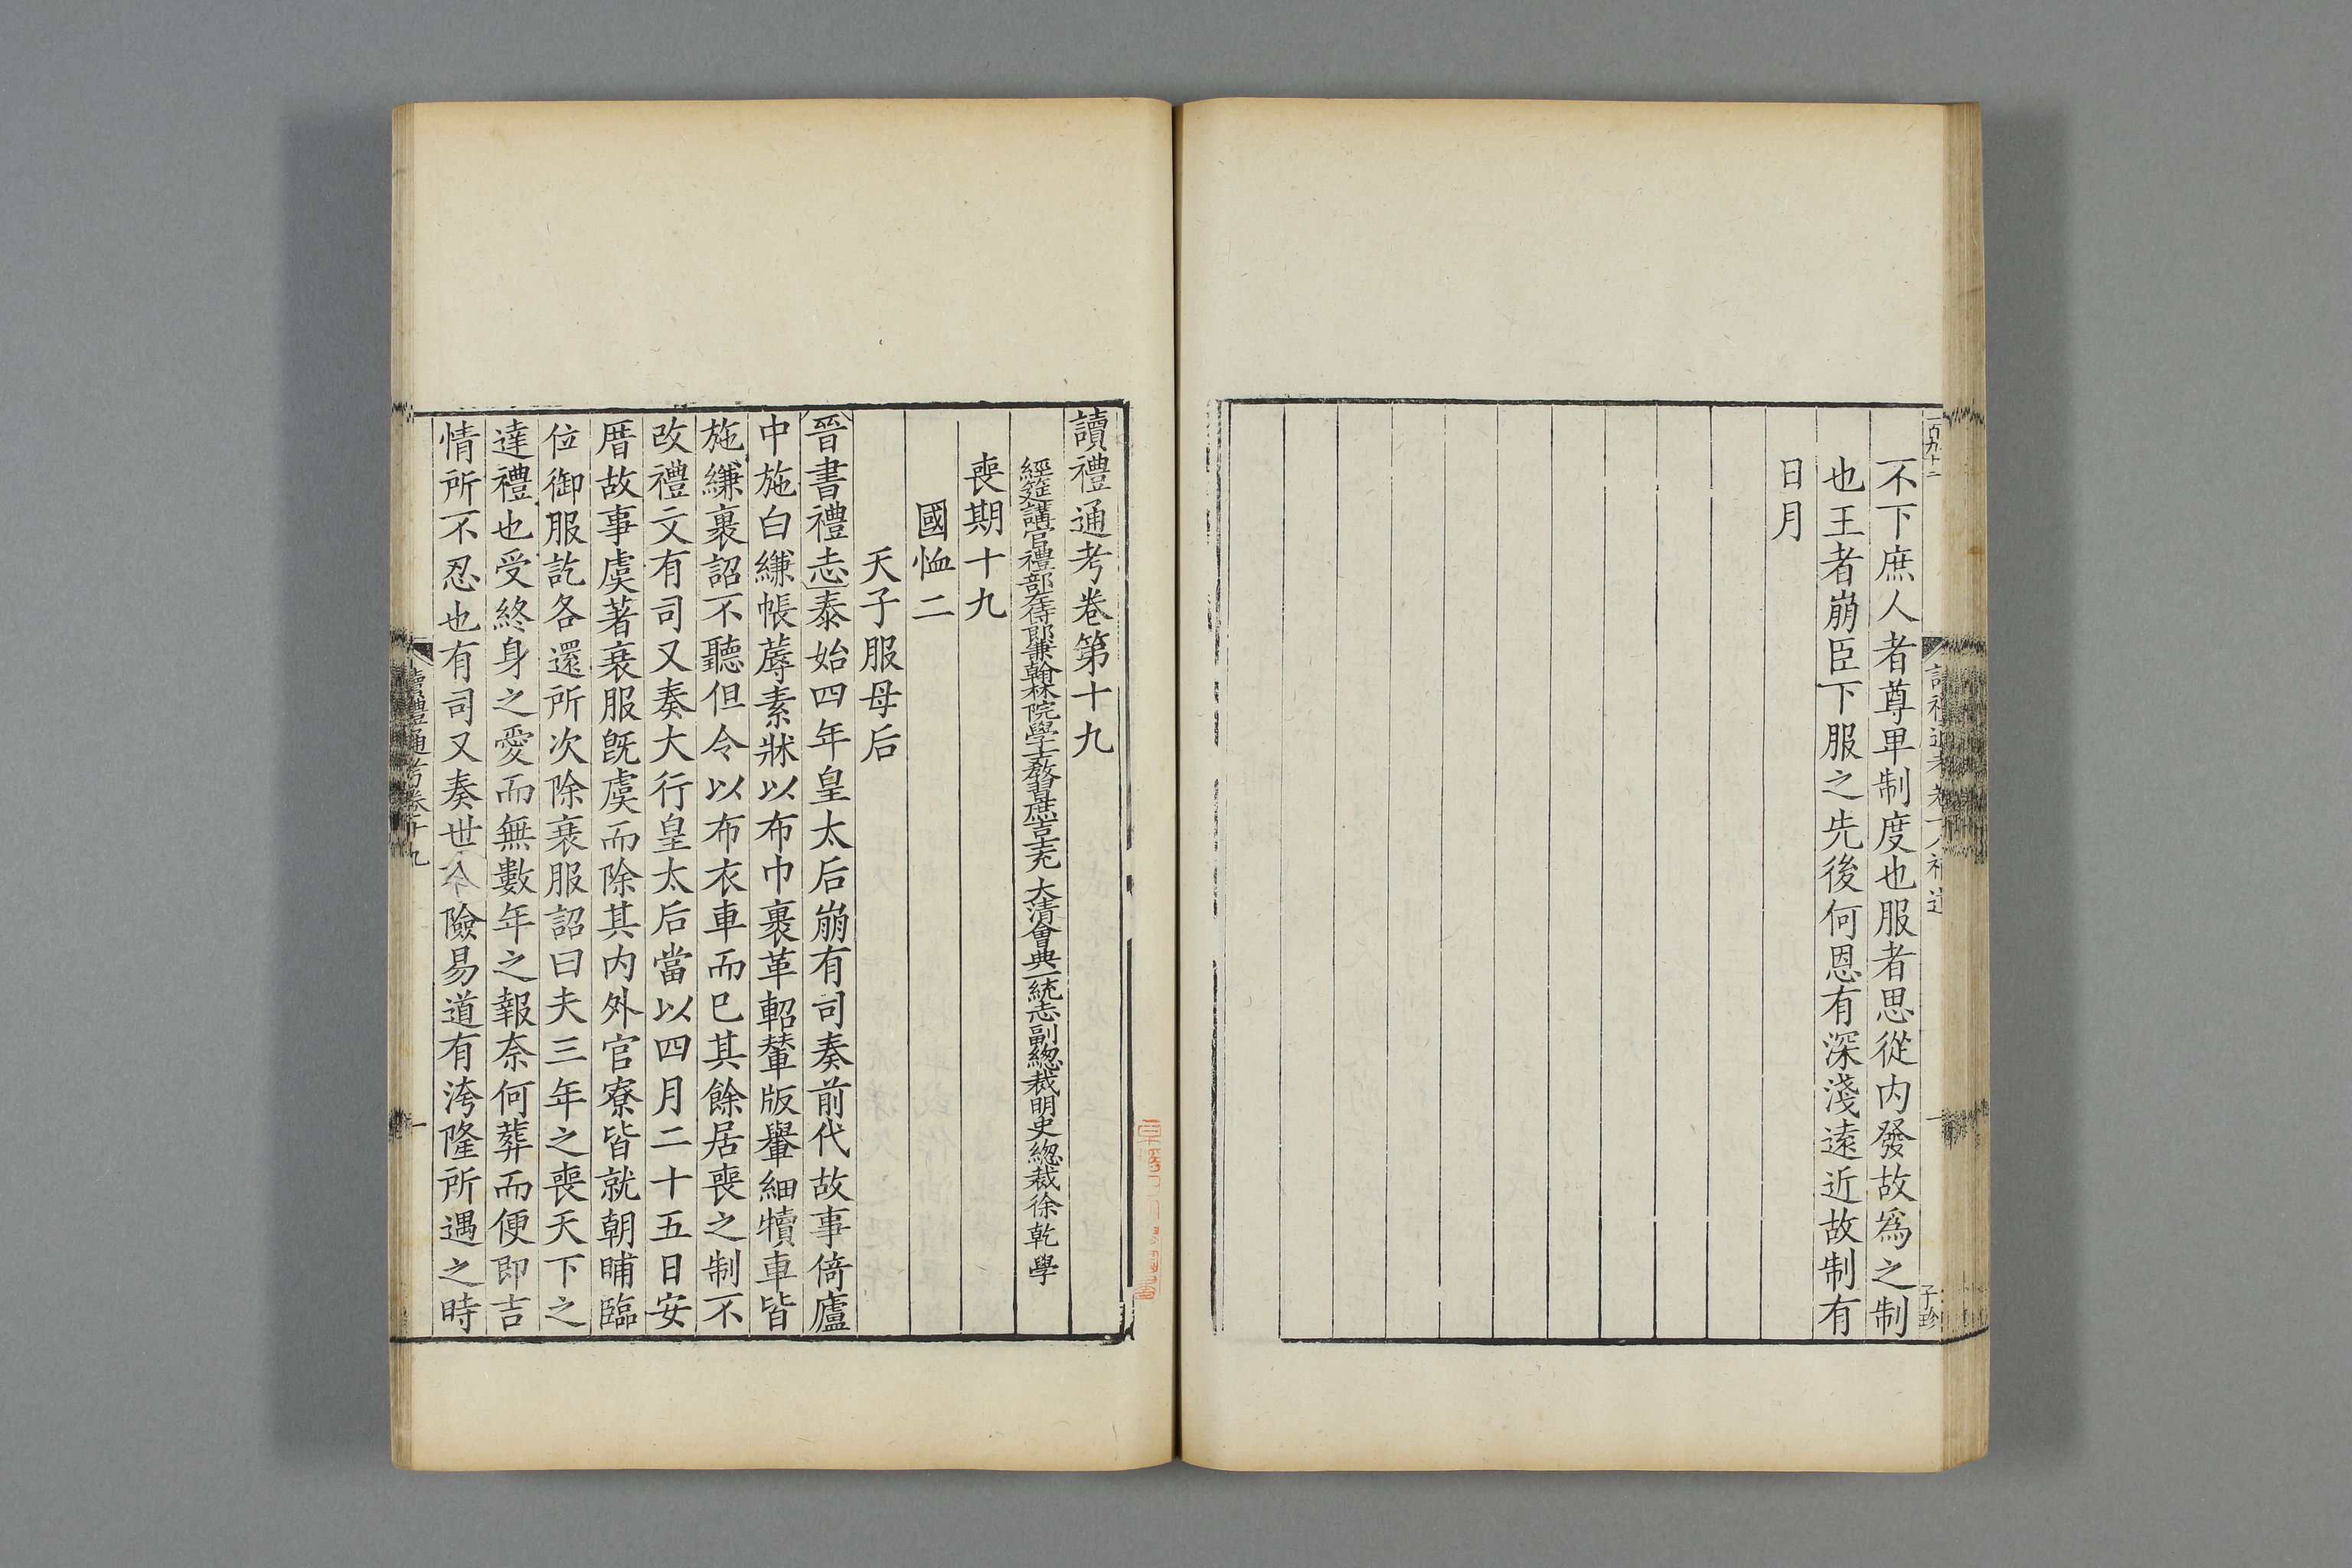 不下庶人者尊卑制度也服者思從内發故爲之制
也王者崩臣下服之先後何恩有深淺遠近故制有
日月
讀禮通考卷第十九
經筵講官禮部左侍郎兼翰林院學士教習庶吉士充 大清會典一統志副總裁明史總裁徐乾學
喪期十九
國恤二
天子服母后
晉書禮志泰始四年皇太后崩有司奏前代故事倚廬
中施白縑帳蓐素牀以布巾裹革軺輦版轝細犢車皆
施縑裹詔不聽但令以布衣車而已其餘居喪之制不
改禮文有司又奏大行皇太后當以四月二十五日安
厝故事虞著衰服旣虞而除其内外官寮皆就朝晡臨
位御服訖各還所次除衰服詔曰夫三年之喪天下之
達禮也受終身之愛而無數年之報奈何葬而便即吉
情所不忍也有司又奏世險易道有洿隆所遇之時
讀禮通考卷十九
一